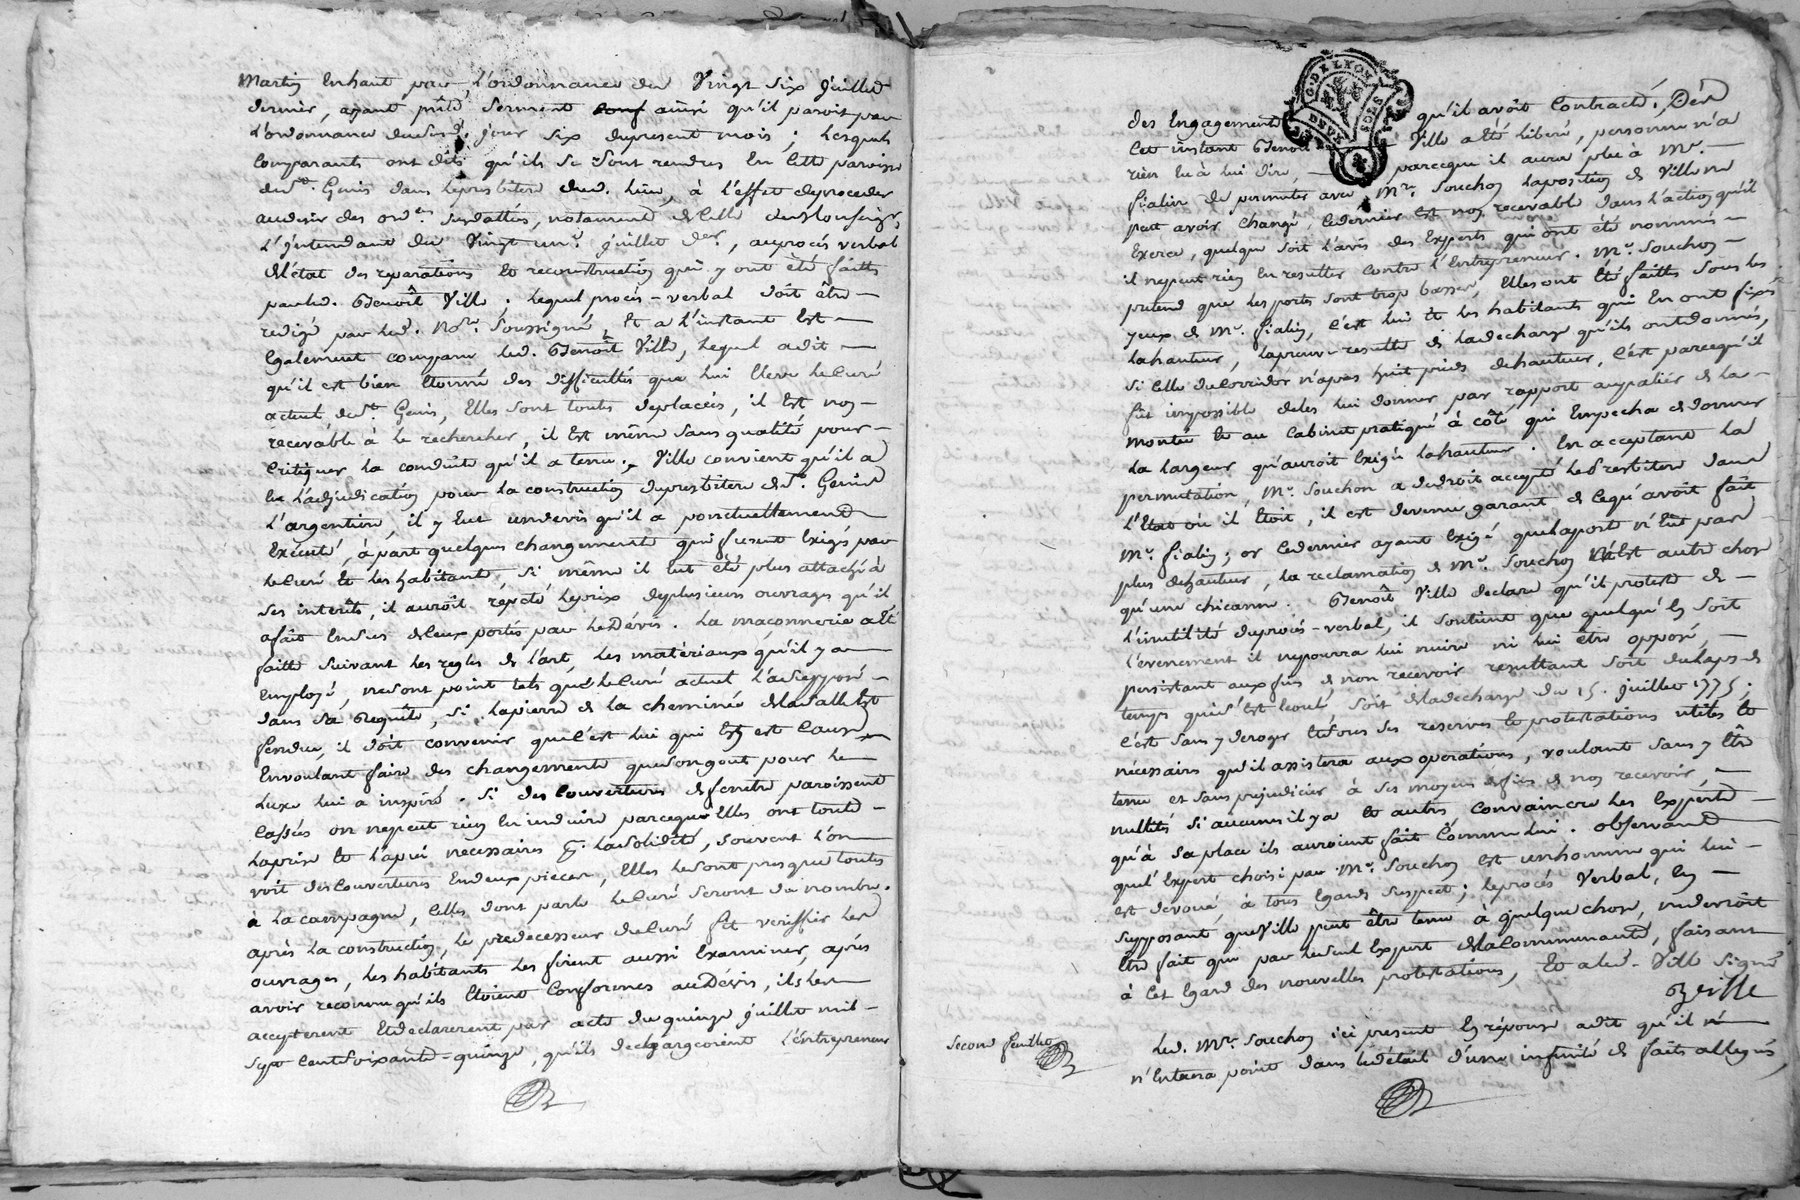 Martin Enhaut par L'ordonnance du Vingt Six Juillet
dernier, ayant prêté Serment ainsi qu'il paroit par
L'ordonnance dud. jour six dupresent mois ; Lesquels
Comparants ont dit qu'ils se sont rendus En Cette paroisse
de St. Genis dans Lepresbitere dud. Lieu, à L'effet deproceder
audesir des ordces susdattées, notament de celle de Monseigr
L'Jntendant du Vingt un Juillet der, auprocès verbal
del'état des reparations et reconstruction qui y ont été faittes
parled. Benoît Ville ; Lequel procès-verbal doit être
redigé par Led. Nore Soussigné, Et a L'instant Est
Egalement comparu led. Benoît Ville, Lequel adit
qu'il est bien Etonné des difficultés que lui Eleve Le Curé
actuel de St. Genis, Elles sont toutes deplacées, il Est non
recevable à le rechercher, il Est même sans qualité pour
Critiquer La conduite qu'il a tenu. Ville convient qu'il a
Eu L'adjudication pour La construction dupresbitere de St. Genis
L'argentiere, il y Eut undevis qu'il a ponctuellement
Executé, à part quelques changements qui furent Exigés par
Le Curé et les habitants, Si même il eut été plus attaché à
Ses interêts, il auroit repeté Leprix deplusieurs ouvrages qu'il
afait Ensus deceux portés par Le Dévis. La maçonnerie a Eté
faitte suivant Les regles de L'art, Les matériaux qu'il y a
Employé, nesont point tels que Le Curé actuel L'a Supposé
dans Sa Requête, Si Lapierre de La cheminée delasalle Est
fendue, il doit convenir que C'est lui qui En est cause
Envoulant faire des changements queson gout pour Le
Luxe lui a inspiré. Si des Couvertures defenetre paroissent
Cassées on nepeut rien En induire parceque Elles ont toute
Laprise et L'apui necessaires pr. La Solidité, souvent L'on
voit des Couvertures Endeux pieces, Elles Le sont presque toutes
à La campagne, Celles dont parle Le Curé Seront du nombre.
après La construction, Le prédecesseur du Curé fit veriffier Les
ouvrages, Les habitants Les firent aussi Examiner, après
avoir reconnu qu'ils Etoient Conformes au Dévis, ils Les
accepterent Et declarerent par acte du quinze Juillet mil
Sept Centsoixante-quinze, qu'ils dechargeoient L'Entrepreneur
des Engagements qu'il avoit Contracté ; Dès
Cet instant Benoit Ville a Eté Libéré, personne n'a
rien Eu à lui dire, parceque il aura plu à Mr.
fialin de permuter avec Mr. Souchon Laposition de Ville ne
peut avoir changé, Cedernier Est non recevable dans L'action qu'il
Exerce, quelque soit L'avis des Experts qui ont été nommés
il nepeut rien En resulter contre L'Entrepreneur. Mr. Souchon
pretend que Les portes sont trop basses, Elles ont Eté faittes sous Les
yeux de Mr. fialin, C'est lui et Les habitants qui En ont fixé
Lahauteur, Lapreuve resulte de Ladecharge qu'ils ont donnés,
Si Celle du Corridor n'a pas huit pieds dehauteur, C'est parcequ'il
fût impossible deles lui donner par rapport aupalier de la
montée et au Cabinet pratiqué à côté qui Empecha de donner
La Largeur qu'auroit Exigé Lahauteur. En acceptant La
permutation, Mr. Souchon a dudroit accepté Le Presbitere dans
L'Etat où il Etoit, il est devenu garant de Cequ'avoit fait
Mr. fialin ; or Cedernier ayant Exigé quelaporte n'Eût pas
plus dehauteur, La reclamation de Mr. Souchon N'Est autre chose
qu'une chicanne. Benoît Ville declare qu'il proteste de
L'inutilité duprocès-verbal, il soutient que quelqu'En soit
L'évenement il nepourra lui nuire ni lui être opposé,
persistant aux fins de non recevoir resultant soit dulaps de
temps quis'Est Ecoulé soit de la decharge du 15. Juillet 1775 ;
C'est Sans y deroger Etsous Ses reserves et protestations utiles et
nécessaires qu'il assistera aux operations, voulant sans y Etre
tenu et sans prejudicier à ses moyens defins de non recevoir,
nullités si aucunes il y a et autres convaincre les Experts
qu'à sa place ils auroient fait Comme lui. observant
quel'Expert choisi par Mr. Souchon Est unhomme qui lui
est devoué, à tous Egards suspect ; Leprocès Verbal, En
supposant queVille peut être tenu à quelque chose, nedevroit
Etre fait que par Leseul Expert dela Communauté, faisant
à Cet Egard des nouvelles protestations, Et a led. Ville signé
BVille
Second feuillet
Led. Mr. Souchon ici present En réponse adit qu'il
n'Entrera point dans Ledétail d'une infinité de faits allegués,
G. DE LYON
DEUX SOLS